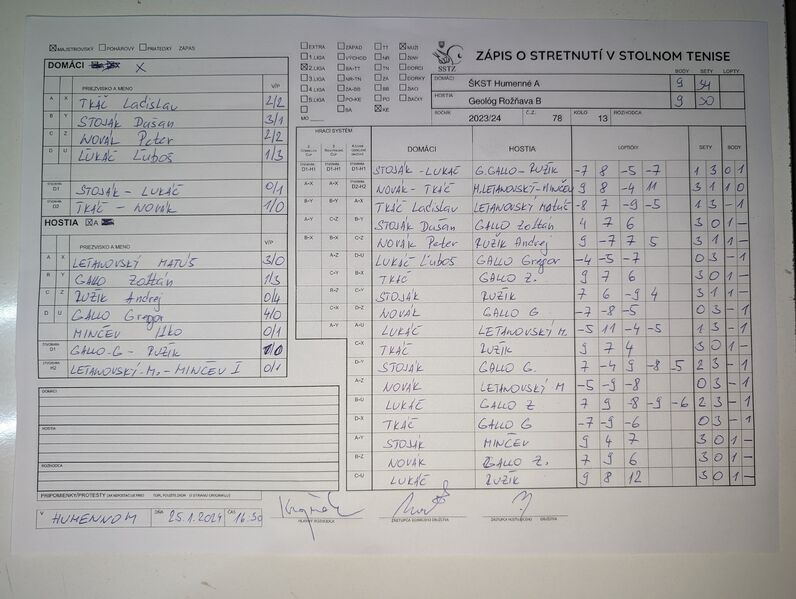 MAJSTROVSKÝ POHÁROVÝ PRIATEĽSKÝ ZÁPAS
DOMÁCI X
PRIEZVISKO A MENO V/P
A X TKÁČ Ladislav 2/2
B Y STOJÁK Dušan 3/1
C Z NOVÁK Peter 2/2
D U LUKÁČ Ľuboš 1/3
D1 STOJÁK - LUKÁČ 0/1
D2 TKÁČ - NOVÁK 1/0
HOSTIA A
PRIEZVISKO A MENO V/P
A X LETANOVSKÝ MATÚŠ 3/0
B Y GALLO Zoltán 1/3
C Z RUŽIK Andrej 0/4
D U GALLO Gregor 4/0
MINČEV Ilko 0/1
D1 GALLO G - RUŽIK 1/0
H2 LETANOVSKÝ M. - MINČEV I 0/1
DOMÁCI
HOSTIA
ROZHODCA
PRIPOMIENKY/PROTESTY
V HUMENNOM DŇA 25.1.2024 ČAS 16:50
HLAVNÝ ROZHODCA
ZÁSTUPCA DOMÁCEHO DRUŽSTVA
ZÁSTUPCA HOSŤUJÚCEHO DRUŽSTVA
EXTRA ZÁPAD TT MUŽI
1.LIGA VÝCHOD NR ŽENY
2.LIGA BA-TT TN DORCI
3.LIGA NR-TN ZA DORKY
4.LIGA ZA-BB BB ŽIACI
5.LIGA PO-KE PO ŽIAČKY
BA KE
MO
SSTZ
ZÁPIS O STRETNUTÍ V STOLNOM TENISE
BODY SETY LOPTY
DOMÁCI ŠKST Humenné A 9 34
HOSTIA Geológ Rožňava B 9 30
ROČNÍK 2023/24 Č.Z. 78 KOLO 13 ROZHODCA
HRACÍ SYSTÉM
DOMÁCI HOSTIA LOPTIČKY SETY BODY
D1-H1 D1-H1 D1-H1 STOJÁK - LUKÁČ G.GALLO - RUŽIK -7 8 -5 -7 1 3 0 1
A-X A-X D2-H2 NOVÁK - TKÁČ M.LETANOVSKÝ-MINČEV 9 8 -4 11 3 1 1 0
B-Y B-Y A-X TKÁČ Ladislav LETANOVSKÝ Matúš -8 7 -9 -5 1 3 - 1
A-Y C-Z B-Y STOJÁK Dušan GALLO Zoltán 4 7 6 3 0 1 -
B-X B-X C-Z NOVÁK Peter RUŽIK Andrej 9 -7 7 5 3 1 1 -
A-Z D-U LUKÁČ Ľuboš GALLO Gregor -4 -5 -7 0 3 - 1
C-Y B-X TKÁČ GALLO Z. 9 7 6 3 0 1 -
B-Z C-Y STOJÁK RUŽIK 7 6 -9 4 3 1 1 -
C-X D-Z NOVÁK GALLO G -7 -8 -5 0 3 - 1
A-Y A-U LUKÁČ LETANOVSKÝ M. -5 11 -4 -5 1 3 - 1
C-X TKÁČ RUŽIK 9 7 4 3 0 1 -
D-Y STOJÁK GALLO G. 7 -4 9 -8 -5 2 3 - 1
A-Z NOVÁK LETANOVSKÝ M -5 -9 -8 0 3 - 1
B-U LUKÁČ GALLO Z 7 9 -8 -9 -6 2 3 - 1
D-X TKÁČ GALLO G -7 -9 -6 0 3 - 1
A-Y STOJÁK MINČEV 9 4 7 3 0 1 -
B-Z NOVÁK GALLO Z. 7 9 6 3 0 1 -
C-U LUKÁČ RUŽIK 9 8 12 3 0 1 -